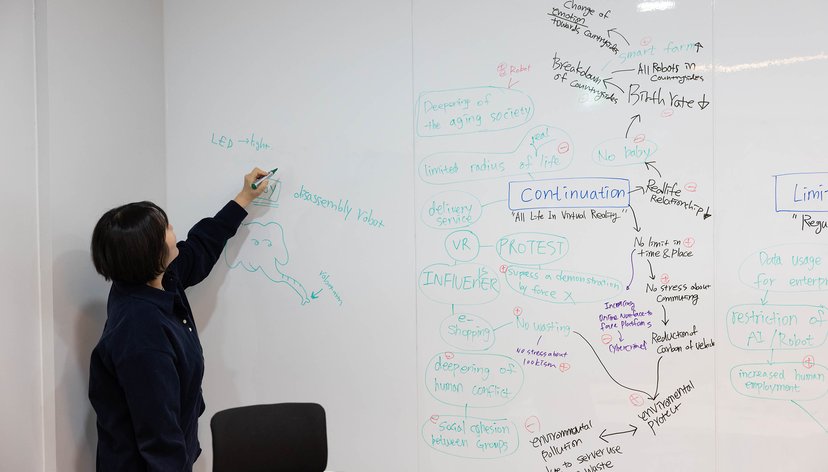 LED → light
disassembly robot
Change of
emotion
towards countryside
smart farm ↑
Breakdown
of countrysides
All Robots in
Countrysides
Birth rate ↓
Robot
Deepening of
the aging society
real
limited radius of life
No baby
Continuation
"All Life In Virtual Reality"
Reallife
Relationship ↓
delivery
service
VR
PROTEST
No limit in
time & Place
INFLUENCER
Supress a demonstration
by force X
No stress about
Commuting
Increasing
e-
shopping
No wasting
No stress about
lookism
Cybercrimes
Reduction of
Carbon of vehicle
deepening of
human conflict
enviromental
Protect
Social cohesion
between Groups
environmental
pollution
due to server use
waste
Limi
"Regu
Data usage
for enterp
restriction of
AI / Robot
increased human
employment